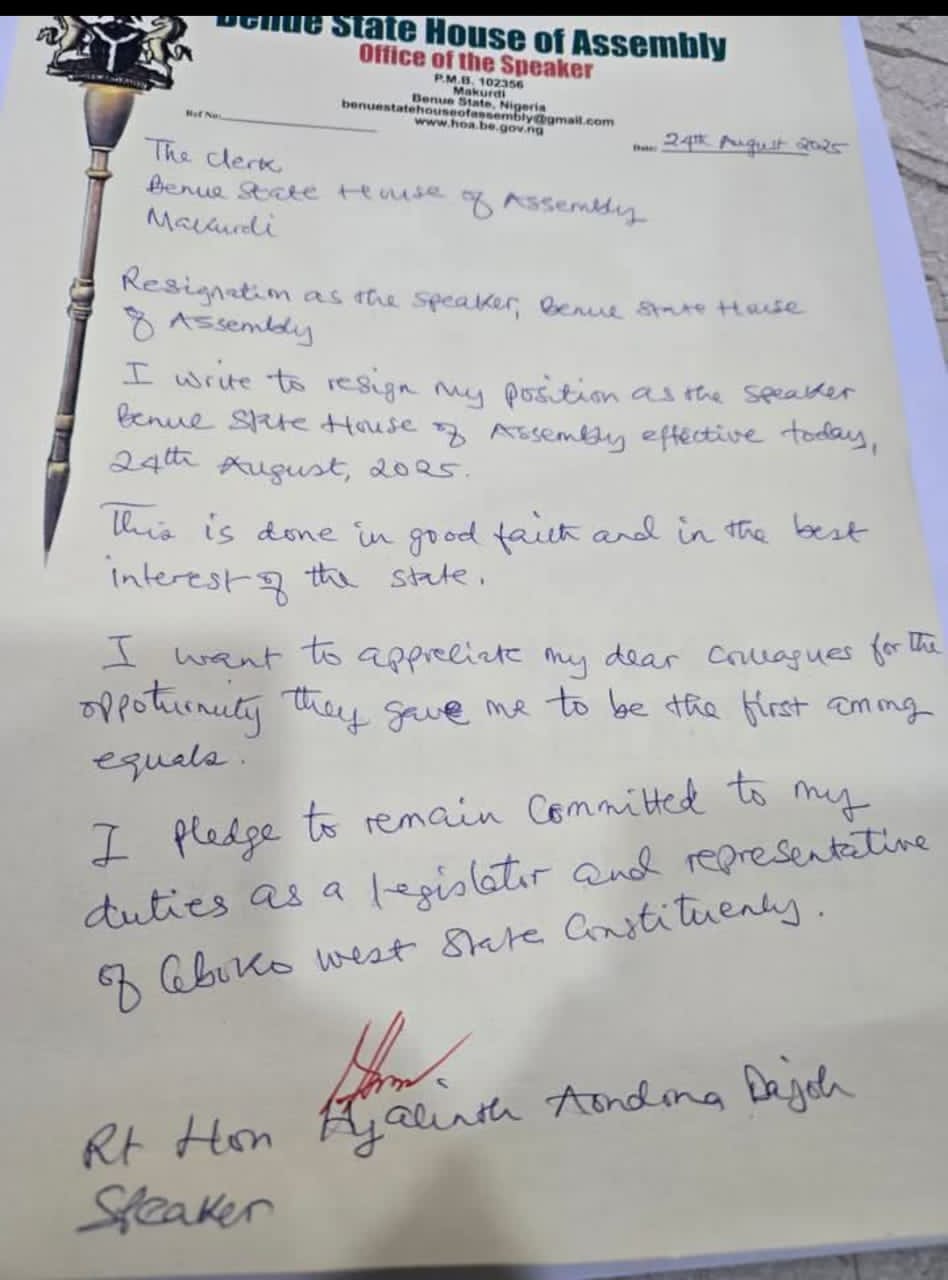 Benue State House of Assembly
Office of the Speaker
P.M.B. 102356
Makurdi
Benue State, Nigeria
benuestatehouseofassembly@gmail.com
www.hoa.be.gov.ng
Ref No:
Date: 24th August 2025
The Clerk
Benue State House of Assembly
Makurdi
Resignation as the speaker, Benue State House
of Assembly
I write to resign my position as the speaker
Benue State House of Assembly effective today,
24th August, 2025.
This is done in good faith and in the best
interest of the state.
I want to appreciate my dear colleagues for the
oppoturnuty they gave me to be the first among
equals.
I pledge to remain committed to my
duties as a legislator and representative
of Gboko west State Constituency.
Rt Hon Hyacinth Aondona Dajoh
Speaker